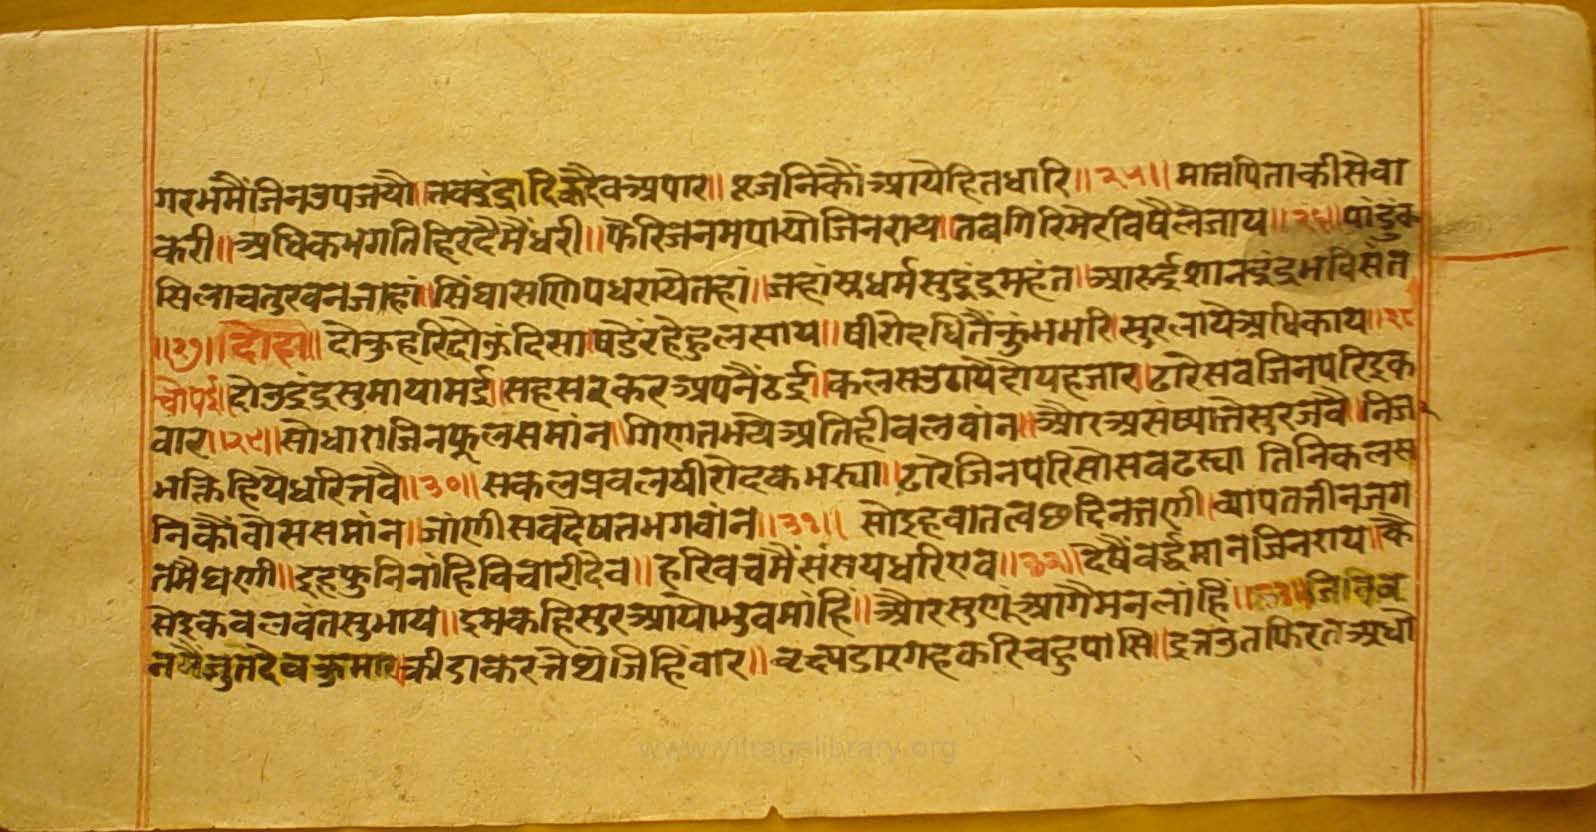 गरभमैंजिनउपजयौ॥तबइंद्रादिकदेवअपार॥ऽजनिकौंआयेहितधारि॥२५॥मातपिताकीसेवा
करी॥अधिकभगतिहिरदैमैंधरी॥फेरिजनमपायौजिनराय।तबगिरिमेरविषैलेजाय॥२६॥पांडुक
सिलाचतुरवनजाहां॥सिंघासणिपधरायेतहां॥जहांसुधर्मसुइंद्रमहंत॥आरईशानइंद्रमविसंत
॥२७॥दोहा॥दोऊहरिदोऊंदिसा।षडेरहेहुलसाय॥षीरोदधितैंकुंभभरि।सुरलायेअधिकाय॥२८
चौपई॥दोउइंद्रसुमायामई।सहसरकरअपनैंठई।कलसउठायेदोयहजार।ढारेसबजिनपरिइक
वार॥२९॥सोधाराजिनफूलसमांन।गिणतभयेअतिहीवलवांन॥औरअसंष्यातेसुरजवै।निज
भक्तिहियेधरित्तवै॥३०॥सकलप्रवलषीरोदकभस्या॥ढारेजिनपरिसोसवढस्या तिनिकलस
निकौंवोससमांन॥जांणीसवदैषतभगवांन॥३१॥ सोइहवातलछदिनत्तणी।व्यापततीनजग
तमैघणी॥इहफुनिनांहिविचारीदेव॥हरिवचमैंसंसयधरिएव॥३२॥देषैंवर्द्धमानजिनराय॥कै
सेइकवलवंतसुभाय॥इमकहिसुरआयोभुवमांहि॥औरसुणंआगैमनलांहिं॥३३॥
नयौंजुतदेवकुमार।कीडाकरतेथेजिहिवार॥ गहकरिचहुपासि॥इतउतफिरतअधौ
www.vitragelibrary.org